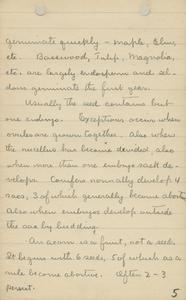 germinate quickly - maple, Elm,
etc. Basswood, Tulip, Magnolia,
etc. are largely endosperm and sel-
dom germinate the first year.
Usually the seed contains but
one embryo. Exceptions occur when
ovules are grown together, also when
the nucellus has become divided, also
when more than one embryo sac de-
velops. Conifers normally develop 4
sacs, 3 of which generally become abortive
Also when embryos develop outside
the sac by budding.
An acorn is a fruit, not a seed.
It begins with 6 seeds, 5 of which as a
rule become abortive. Often 2-3
persist.
5